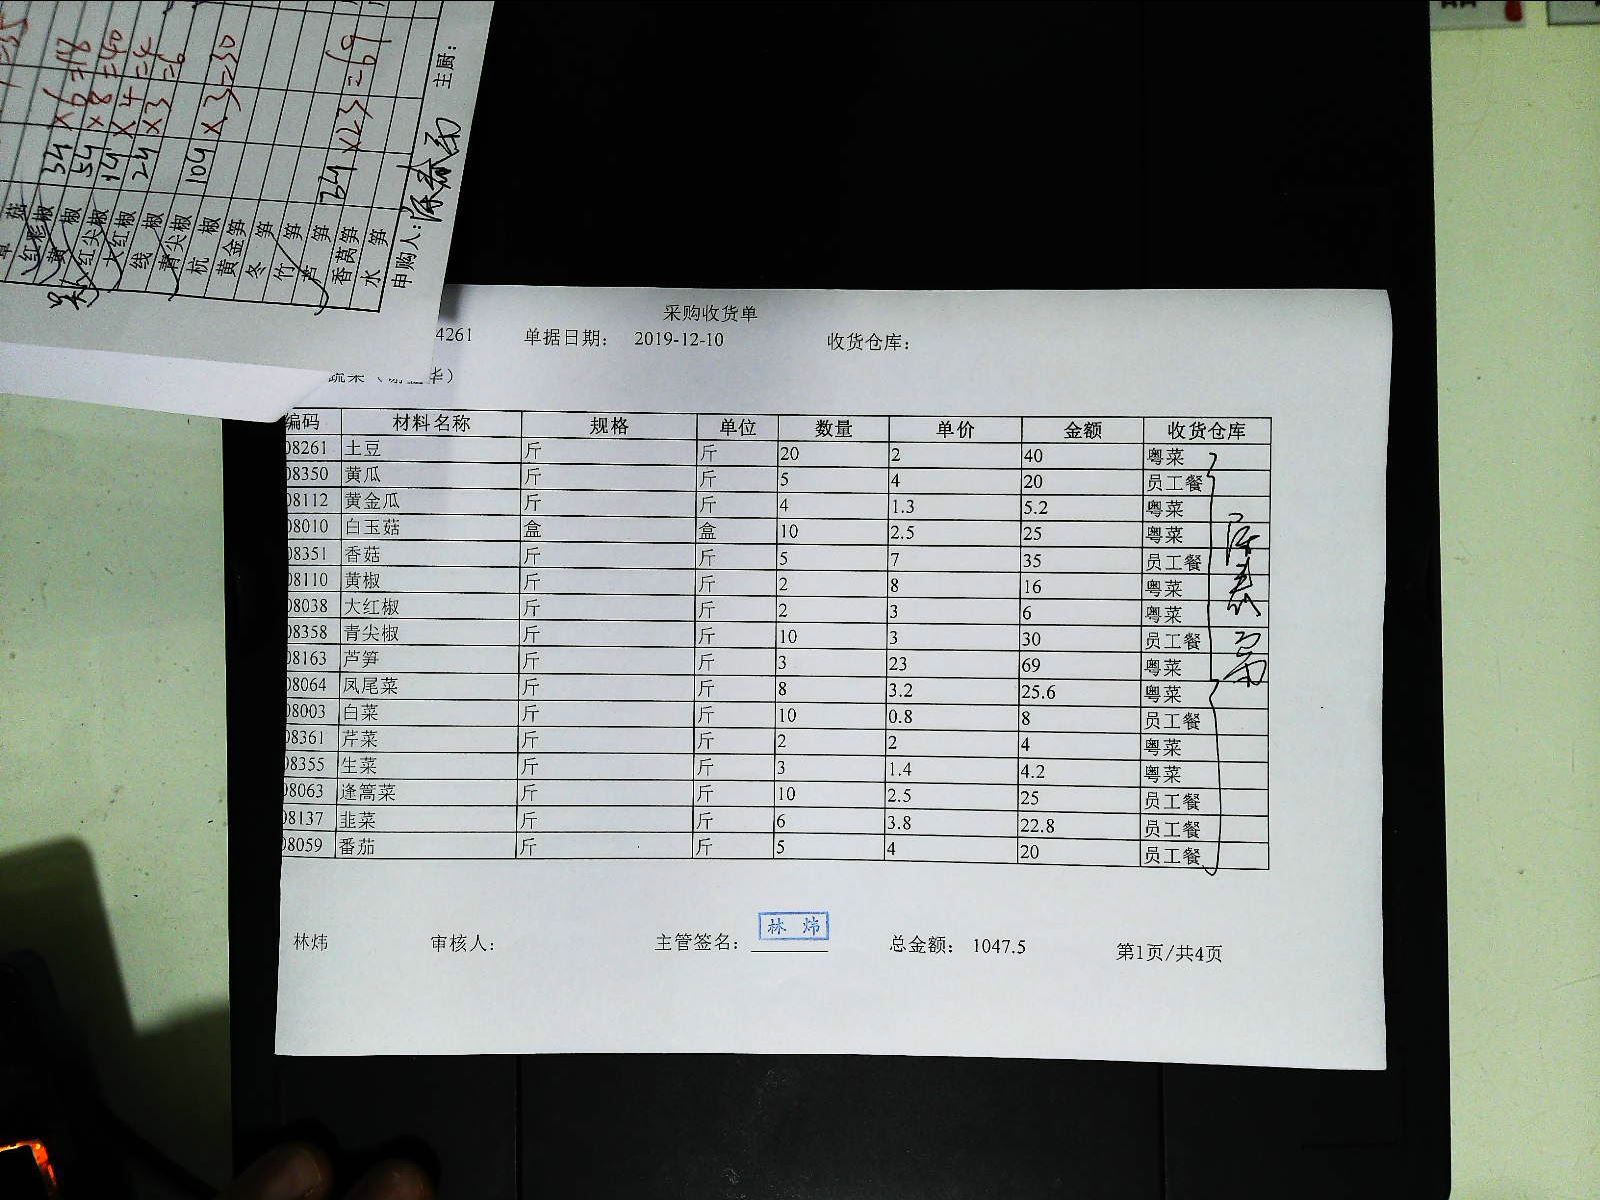 采购收货单
4261 单据日期： 2019-12-10 收货仓库：
编码 材料名称 规格 单位 数量 单价 金额 收货仓库
08261 土豆 斤 斤 20 2 40 粤菜
08350 黄瓜 斤 斤 5 4 20 员工餐
08112 黄金瓜 斤 斤 4 1.3 5.2 粤菜
08010 白玉菇 盒 盒 10 2.5 25 粤菜
08351 香菇 斤 斤 5 7 35 员工餐
08110 黄椒 斤 斤 2 8 16 粤菜
08038 大红椒 斤 斤 2 3 6 粤菜
08358 青尖椒 斤 斤 10 3 30 员工餐
08163 芦笋 斤 斤 3 23 69 粤菜
08064 凤尾菜 斤 斤 8 3.2 25.6 粤菜
08003 白菜 斤 斤 10 0.8 8 员工餐
08361 芹菜 斤 斤 2 2 4 粤菜
08355 生菜 斤 斤 3 1.4 4.2 粤菜
08063 逢篙菜 斤 斤 10 2.5 25 员工餐
08137 韭菜 斤 斤 6 3.8 22.8 员工餐
08059 番茄 斤 斤 5 4 20 员工餐
林炜 审核人： 主管签名： 林炜 总金额： 1047.5 第1页/共4页
菇
红彩椒
黄椒
红尖椒
大红椒
线椒
青尖椒 ×3=30
杭椒
黄金笋
冬笋
竹笋
芦笋 ×23=69
香莴笋
水笋
申购人： 主厨：